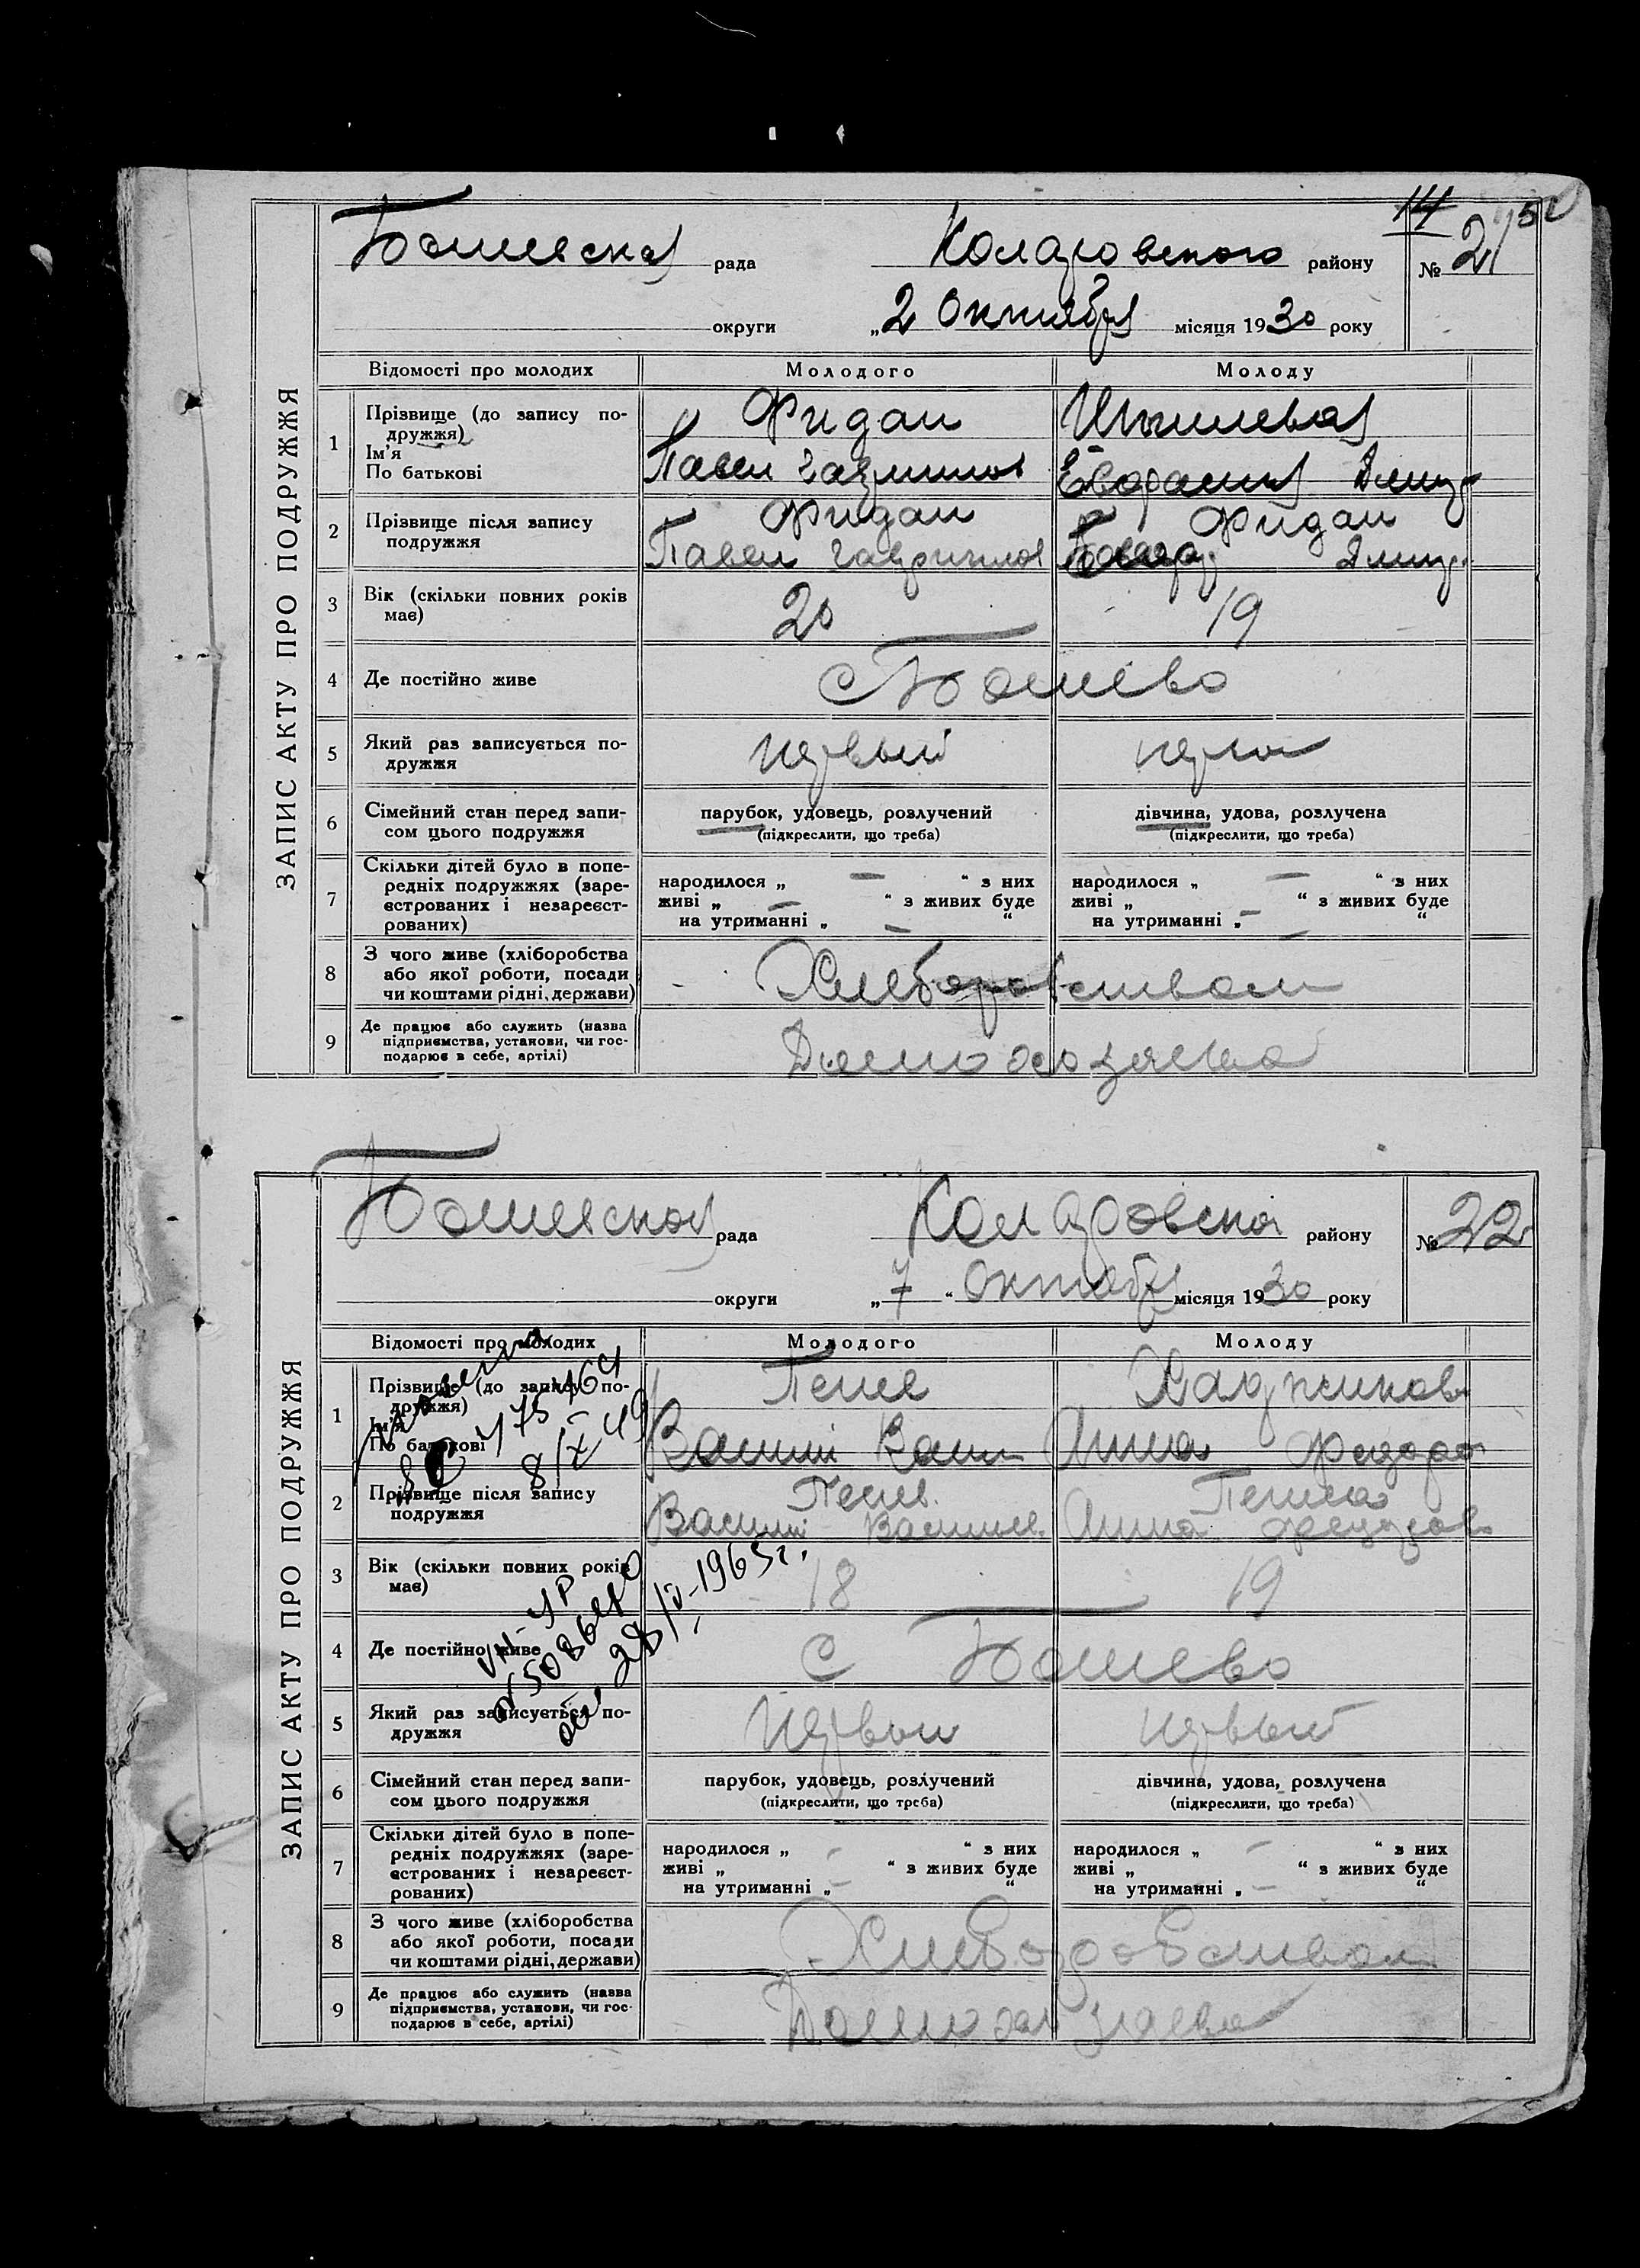 14
Ботевская рада Коларовского району № 21
округи „2 Октября місяця 1930 року
ЗАПИС АКТУ ПРО ПОДРУЖЖЯ
Відомості про молодих Молодого Молоду
1 Прізвище (до запису по-
дружжя)
Ім'я
По батькові
Фидан
Павел Гаврилов
Дмит
2 Прізвище після запису
подружжя
Фидан Фидан
Павел Гаврилов Дмит
3 Вік (скільки повних років
має)
20 19
4 Де постійно живе
с Ботево
5 Який раз записується по-
дружжя
первый
6 Сімейний стан перед запи-
сом цього подружжя
парубок, удовець, розлучений дівчина, удова, розлучена
(підкреслити, що треба) (підкреслити, що треба)
7 Скільки дітей було в попе-
редніх подружжях (заре-
єстрованих і незареєст-
рованих)
народилося „ — “ з них народилося „ — “ з них
живі „ — “ з живих буде живі „ “ з живих буде
на утриманні „ — “ на утриманні „ — “
8 З чого живе (хліборобства
або якої роботи, посади
чи коштами рідні, держави)
Хлеборобством
9 Де працює або служить (назва
підприємства, установи, чи гос-
подарює в себе, артілі)
Домохозяева
Ботевская рада Коларовская району № 22
округи „7“ Октября місяця 1930 року
ЗАПИС АКТУ ПРО ПОДРУЖЖЯ
Відомості про молодих Молодого Молоду
1 Прізвище (до запису по-
дружжя)
Ім'я
По батькові
Пенев Хаджинова
Василий Васил Анна Федоров
8/X 49
2 Прізвище після запису
подружжя
Пенев Пенева
Василий Васильев. Анна Федоров
3 Вік (скільки повних років
має)
18 19
28/IV-1965г.
4 Де постійно живе
с Ботево
5 Який раз записується по-
дружжя
Первый первый
6 Сімейний стан перед запи-
сом цього подружжя
парубок, удовець, розлучений дівчина, удова, розлучена
(підкреслити, що треба) (підкреслити, що треба)
7 Скільки дітей було в попе-
редніх подружжях (заре-
єстрованих і незареєст-
рованих)
народилося „ - “ з них народилося „ — “ з них
живі „ “ з живих буде живі „ “ з живих буде
на утриманні „ — “ на утриманні „ — “
8 З чого живе (хліборобства
або якої роботи, посади
чи коштами рідні, держави)
Хлеборобством
9 Де працює або служить (назва
підприємства, установи, чи гос-
подарює в себе, артілі)
Домохозяева